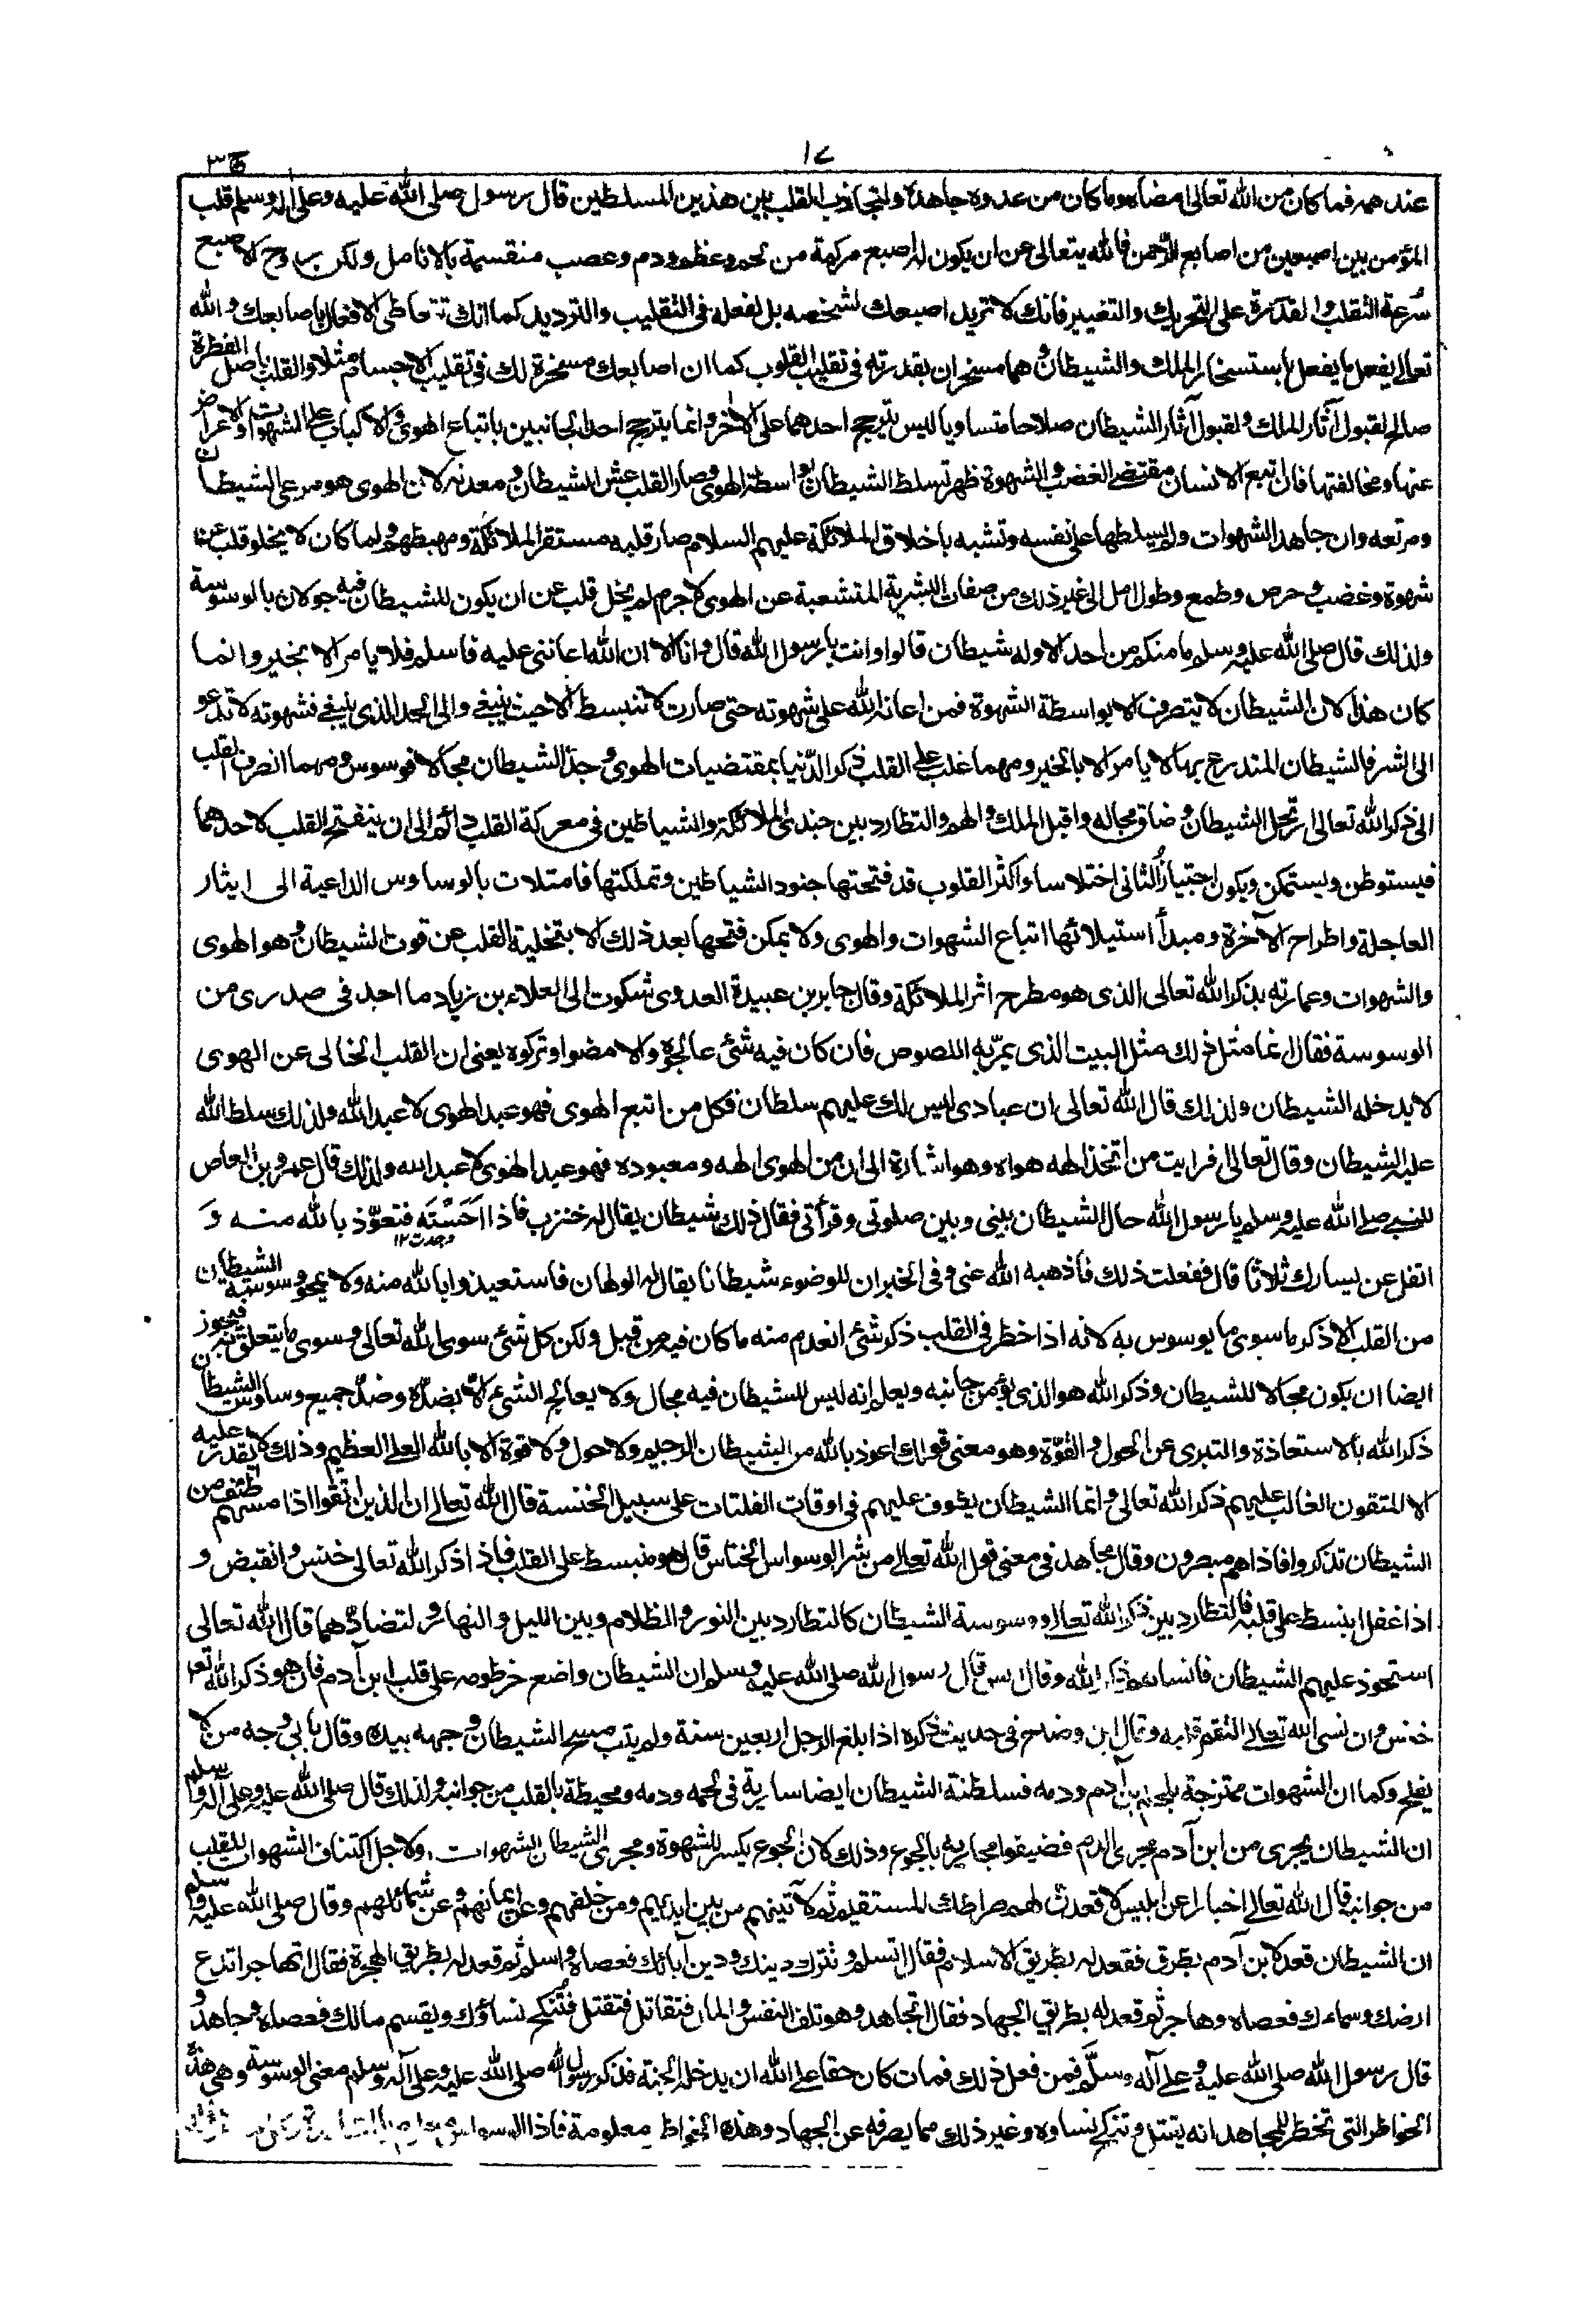 ١٧
ج٣
عند همه فما كان من الله تعالى امضاه وما كان من عدوه جاهده ولتجاذب القلب بين هذين المسلطين قال رسول صلى الله عليه وعلى اله وسلم قلب
المؤمن بين اصبعين من اصابع الرحمن فالله يتعالى عن ان يكون له اصبع مركبة من لحم وعظم ودم وعصب منقسمة بالانامل ولكن روح الاصبع
سرعة التقلب والقدرة على التحريك والتغيير فانك لا تريد اصبعك لشخصه بل لفعله فى التقليب والترديد كما انك تتعاطى الافعال باصابعك والله
تعالى يفعل ما يفعل باستسخار الملك والشيطان وهما مسخران بقدرته فى تقليب القلوب كما ان اصابعك مسخرة لك فى تقليب الاجسام مثلا والقلب باصل الفطرة
صالح لقبول آثار الملك ولقبول آثار الشيطان صلاحا متساويا ليس يترجح احدهما على الآخر وانما يترجح احد الجانبين باتباع الهوى والاكباب على الشهوات والاعراض
عنها ومخالفتها فان اتبع الانسان مقتضى الغضب والشهوة ظهر تسلط الشيطان بواسطة الهوى وصار القلب عش الشيطان ومعدنه لان الهوى هو مرعى الشيطان
ومرتعه وان جاهد الشهوات ولم يسلطها على نفسه وتشبه باخلاق الملائكة عليهم السلام صار قلبه مستقر الملائكة ومهبطهم ولما كان لا يخلو قلب عن
شهوة وغضب وحرص وطمع وطول امل الى غير ذلك من صفات البشرية المتشعبة عن الهوى لا جرم لم يخل قلب عن ان يكون للشيطان فيه جولان بالوسوسة
ولذلك قال صلى الله عليه وسلم ما منكم من احد الا وله شيطان قالوا وانت يا رسول الله قال وانا الا ان الله اعاننى عليه فاسلم فلا يامر الا بخير وانما
كان هذا لان الشيطان لا يتصرف الا بواسطة الشهوة فمن اعانه الله على شهوته حتى صارت لا تنبسط الا حيث ينبغى والى الحد الذى ينبغى فشهوته لا تدعو
الى الشر فالشيطان المتدرع بها لا يامر الا بالخير ومهما غلب على القلب ذكر الدنيا بمقتضيات الهوى وجد الشيطان مجالا فوسوس ومهما انصرف القلب
الى ذكر الله تعالى ارتحل الشيطان وضاق مجاله واقبل الملك والهم والتطارد بين جندى الملائكة والشياطين فى معركة القلب دائم الى ان ينفتح القلب لاحدهما
فيستوطن ويستمكن ويكون اجتياز الثانى اختلاسا واكثر القلوب قد فتحتها جنود الشياطين وتملكتها فامتلات بالوساوس الداعية الى ايثار
العاجلة واطراح الآخرة ومبدأ استيلائها اتباع الشهوات والهوى ولا يمكن فتحها بعد ذلك الا بتخلية القلب عن قوت الشيطان وهو الهوى
والشهوات وعمارته بذكر الله تعالى الذى هو مطرح اثر الملائكة وقال جابر بن عبيدة العدوى شكوت الى العلاء بن زياد ما اجد فى صدرى من
الوسوسة فقال انما مثل ذلك مثل البيت الذى يمر به اللصوص فان كان فيه شئ عالجوه والا مضوا وتركوه يعنى ان القلب الخالى عن الهوى
لا يدخله الشيطان ولذلك قال الله تعالى ان عبادى ليس لك عليهم سلطان فكل من اتبع الهوى فهو عبد الهوى لا عبد الله ولذلك سلط الله
عليه الشيطان وقال تعالى افرايت من اتخذ الهه هواه وهو اشارة الى ان من الهوى الهه ومعبوده فهو عبد الهوى لا عبد الله ولذلك قال عمرو بن العاص
للنبى صلى الله عليه وسلم يا رسول الله حال الشيطان بينى وبين صلوتى وقرأتى فقال ذلك شيطان يقال له خنزب فاذا احسسته فتعوذ بالله منه و
وجدت ١٢
اتفل عن يسارك ثلاثا قال ففعلت ذلك فاذهبه الله عنى وفى الخبر ان للوضوء شيطانا يقال له الولهان فاستعيذوا بالله منه ولا يمحو وسوسة الشيطان
من القلب الا ذكر ما سوى ما يوسوس به لانه اذا خطر فى القلب ذكر شئ انعدم منه ما كان فيه من قبل ولكن كل شئ سوى الله تعالى وسوى ما يتعلق به فيجوز
ايضا ان يكون مجالا للشيطان وذكر الله هو الذى يؤمن جانبه ويعلم انه ليس للشيطان فيه مجال ولا يعالج الشئ الا بضده وضد جميع وساوس الشيطان
ذكر الله بالاستعاذة والتبرى عن الحول والقوة وهو معنى قولك اعوذ بالله من الشيطان الرجيم ولا حول ولا قوة الا بالله العلى العظيم وذلك لا يقدر عليه
الا المتقون الغالب عليهم ذكر الله تعالى وانما الشيطان يطوف عليهم فى اوقات الفلتات على سبيل الخنسة قال الله تعالى ان الذين اتقوا اذا مسهم طئف من
الشيطان تذكروا فاذا هم مبصرون وقال مجاهد فى معنى قول الله تعالى من شر الوسواس الخناس قال هو منبسط على القلب فاذا ذكر الله تعالى خنس وانقبض و
اذا غفل انبسط على قلبه فالتطارد بين ذكر الله تعالى ووسوسة الشيطان كالتطارد بين النور والظلام وبين الليل والنهار ولتضادهما قال الله تعالى
استحوذ عليهم الشيطان فانساهم ذكر الله وقال انس قال رسول الله صلى الله عليه وسلم ان الشيطان واضع خرطومه على قلب ابن آدم فان هو ذكر الله تعر
خنس وان نسى الله تعالى التقم قلبه وقال ابن وضاح فى حديث ذكره اذا بلغ الرجل اربعين سنة ولم يتب مسح الشيطان وجهه بيده وقال بابى وجه من لا
يفلح وكما ان الشهوات ممتزجة بلحم ابن آدم ودمه فسلطنة الشيطان ايضا سارية فى لحمه ودمه ومحيطة بالقلب من جوانبه ولذلك قال صلى الله عليه وعلى آله وسلم
ان الشيطان يجرى من ابن آدم مجرى الدم فضيقوا مجاريه بالجوع وذلك لان الجوع يكسر الشهوة ومجرى الشيطان الشهوات ولاجل اكتناف الشهوات للقلب
من جوانبه قال الله تعالى اخبارا عن ابليس لاقعدن لهم صراطك المستقيم ثم لآتينهم من بين ايديهم ومن خلفهم وعن ايمانهم وعن شمائلهم وقال صلى الله عليه وسلم
ان الشيطان قعد لابن آدم بطرق فقعد له بطريق الاسلام فقال اتسلم وتترك دينك ودين آبائك فعصاه واسلم ثم قعد له بطريق الهجرة فقال اتهاجر اتدع
ارضك وسماءك فعصاه وهاجر ثم قعد له بطريق الجهاد فقال اتجاهد وهو تلف النفس والمال فتقاتل فتقتل فتنكح نساؤك ويقسم مالك فعصاه وجاهد و
قال رسول الله صلى الله عليه وعلى آله وسلم فمن فعل ذلك فمات كان حقا على الله ان يدخله الجنة فذكر رسول الله صلى الله عليه وعلى آله وسلم معنى الوسوسة وهى هذه
الخواطر التى تخطر للمجاهد انه يقتل وتنكح نساوه وغير ذلك مما يصرفه عن الجهاد وهذه الخواطر معلومة فاذا الوسواس